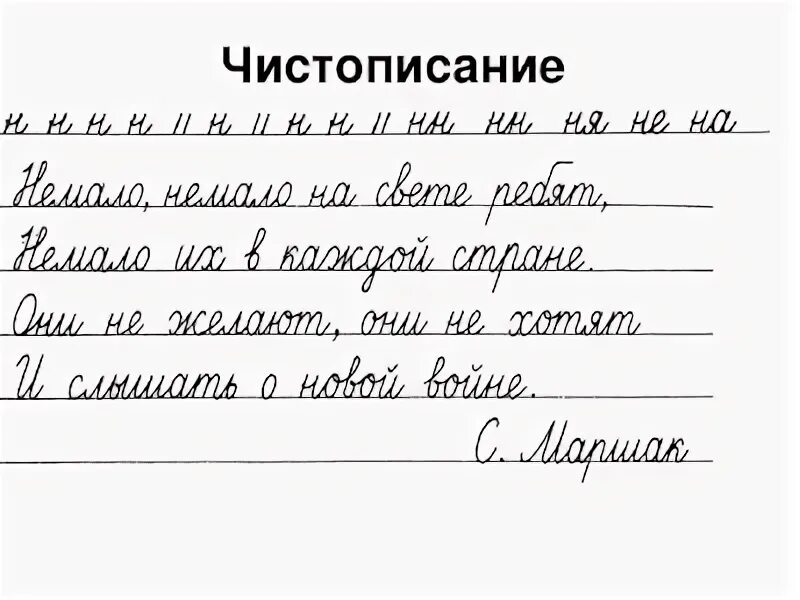 Чистописание
н н н н // н // н н // нн нн ня не на
Немало, немало на свете ребят,
Немало их в каждой стране.
Они не желают, они не хотят
И слышать о новой войне.
С. Маршак